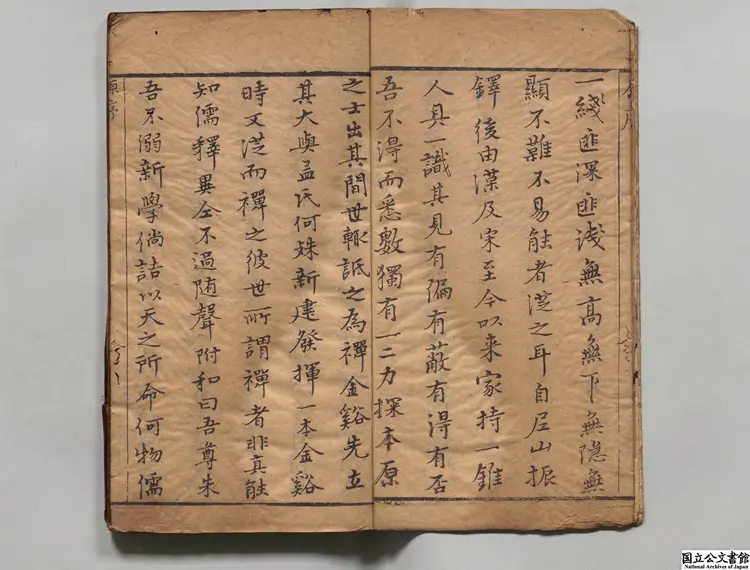 一綫匪深匪淺無高無下無隐無
顯不難不易能者從之耳自尼山振
鐸後由漢及宋至今以來家持一錐
人具一識其見有偏有蔽有得有否
吾不得而悉數獨有一二力探本原
之士出其間世輙詆之為禪金谿先立
其大與孟氏何殊新建發揮一本金谿
時又從而禪之彼世所謂禪者非真能
知儒釋異仝不過随聲附和曰吾尊朱
吾不溺新學倘詰以天之所命何物儒
原序
国立公文書館
National Archives of Japan